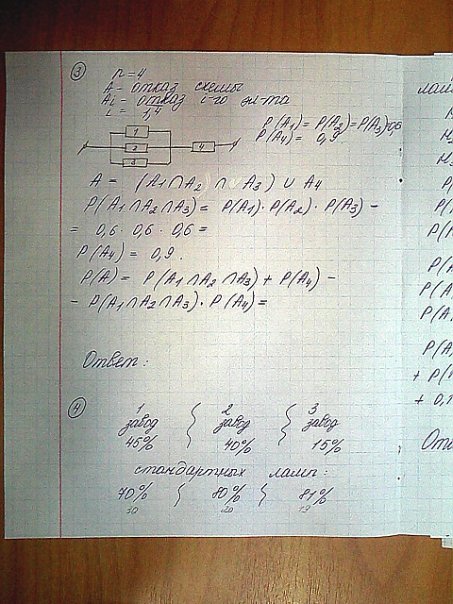 3
n = 4
A - отказ схемы
Ai - отказ i-го эл-та
i = 1,4
1
2
3
4
P(A1) = P(A2) = P(A3) 0,6
P(A4) = 0,9
A = (A1 ∩ A2 ∩ A3) ∪ A4
P(A1 ∩ A2 ∩ A3) = P(A1) · P(A2) · P(A3) =
= 0,6 · 0,6 · 0,6 =
P(A4) = 0,9.
P(A) = P(A1 ∩ A2 ∩ A3) + P(A4) -
- P(A1 ∩ A2 ∩ A3) · P(A4) =
Ответ:
4
1 2 3
завод завод завод
45% 40% 15%
стандартных ламп:
70% 80% 81%
30 20 19
ламп
P(A
P(A
P(A
P(A
+ P(
+ 0,1
Отв